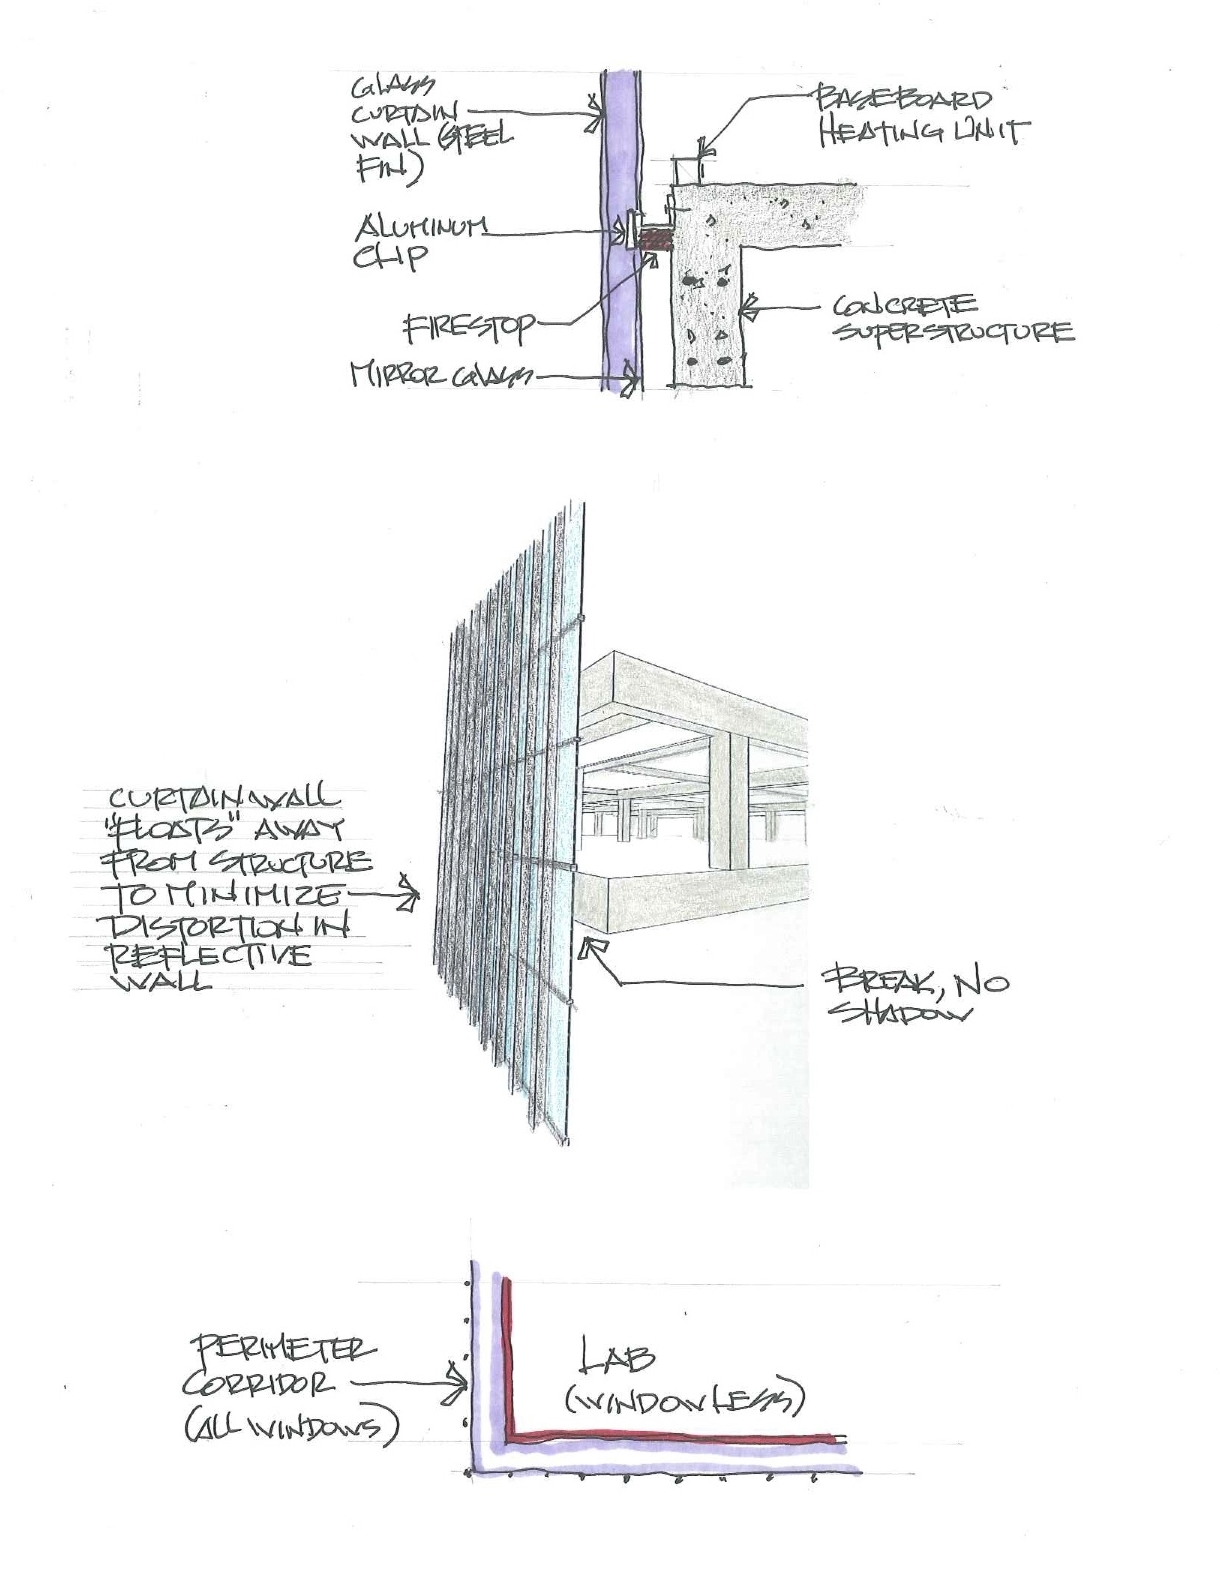 GLASS
CURTAIN
WALL (STEEL
FIN)
BASEBOARD
HEATING UNIT
ALUMINUM
CLIP
FIRESTOP
CONCRETE
SUPERSTRUCTURE
MIRROR GLASS
CURTAIN WALL
"FLOATS" AWAY
FROM STRUCTURE
TO MINIMIZE
DISTORTION IN
REFLECTIVE
WALL
BREAK, NO
SHADOW
PERIMETER
CORRIDOR
(ALL WINDOWS)
LAB
(WINDOWLESS)